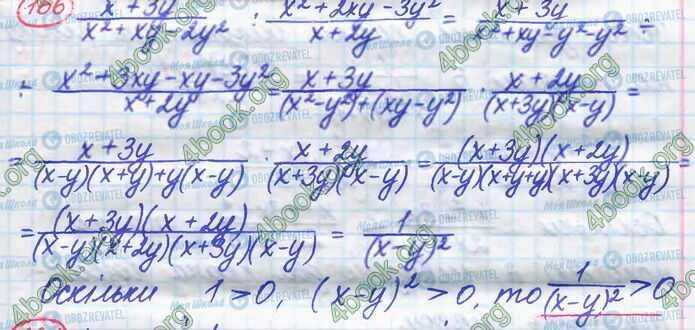 166 (x + 3y)/(x² + xy - 2y²) : (x² + 2xy - 3y²)/(x + 2y) = (x + 3y)/(x² + xy - y² - y²) ÷
÷ (x² + 3xy - xy - 3y²)/(x + 2y) = (x + 3y)/((x² - y²) + (xy - y²)) · (x + 2y)/((x + 3y)(x - y)) =
= (x + 3y)/((x - y)(x + y) + y(x - y)) · (x + 2y)/((x + 3y)(x - y)) = ((x + 3y)(x + 2y))/((x - y)(x + y + y)(x + 3y)(x - y)) =
= ((x + 3y)(x + 2y))/((x - y)(x + 2y)(x + 3y)(x - y)) = 1/(x - y)²
Оскільки 1 > 0, (x - y)² > 0, то 1/(x - y)² > 0
4book.org
Моя Школа
OBOZREVATEL